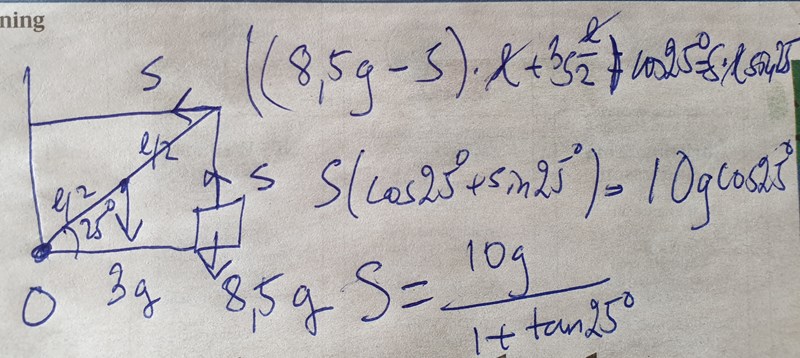 ning
((8,5g - S) · l + 3g l/2) cos25° = S · l sin25
S
l/2
l/2
25°
S
S(cos25° + sin25°) = 10g cos25°
O
3g
8,5g
S = 10g / (1 + tan25°)